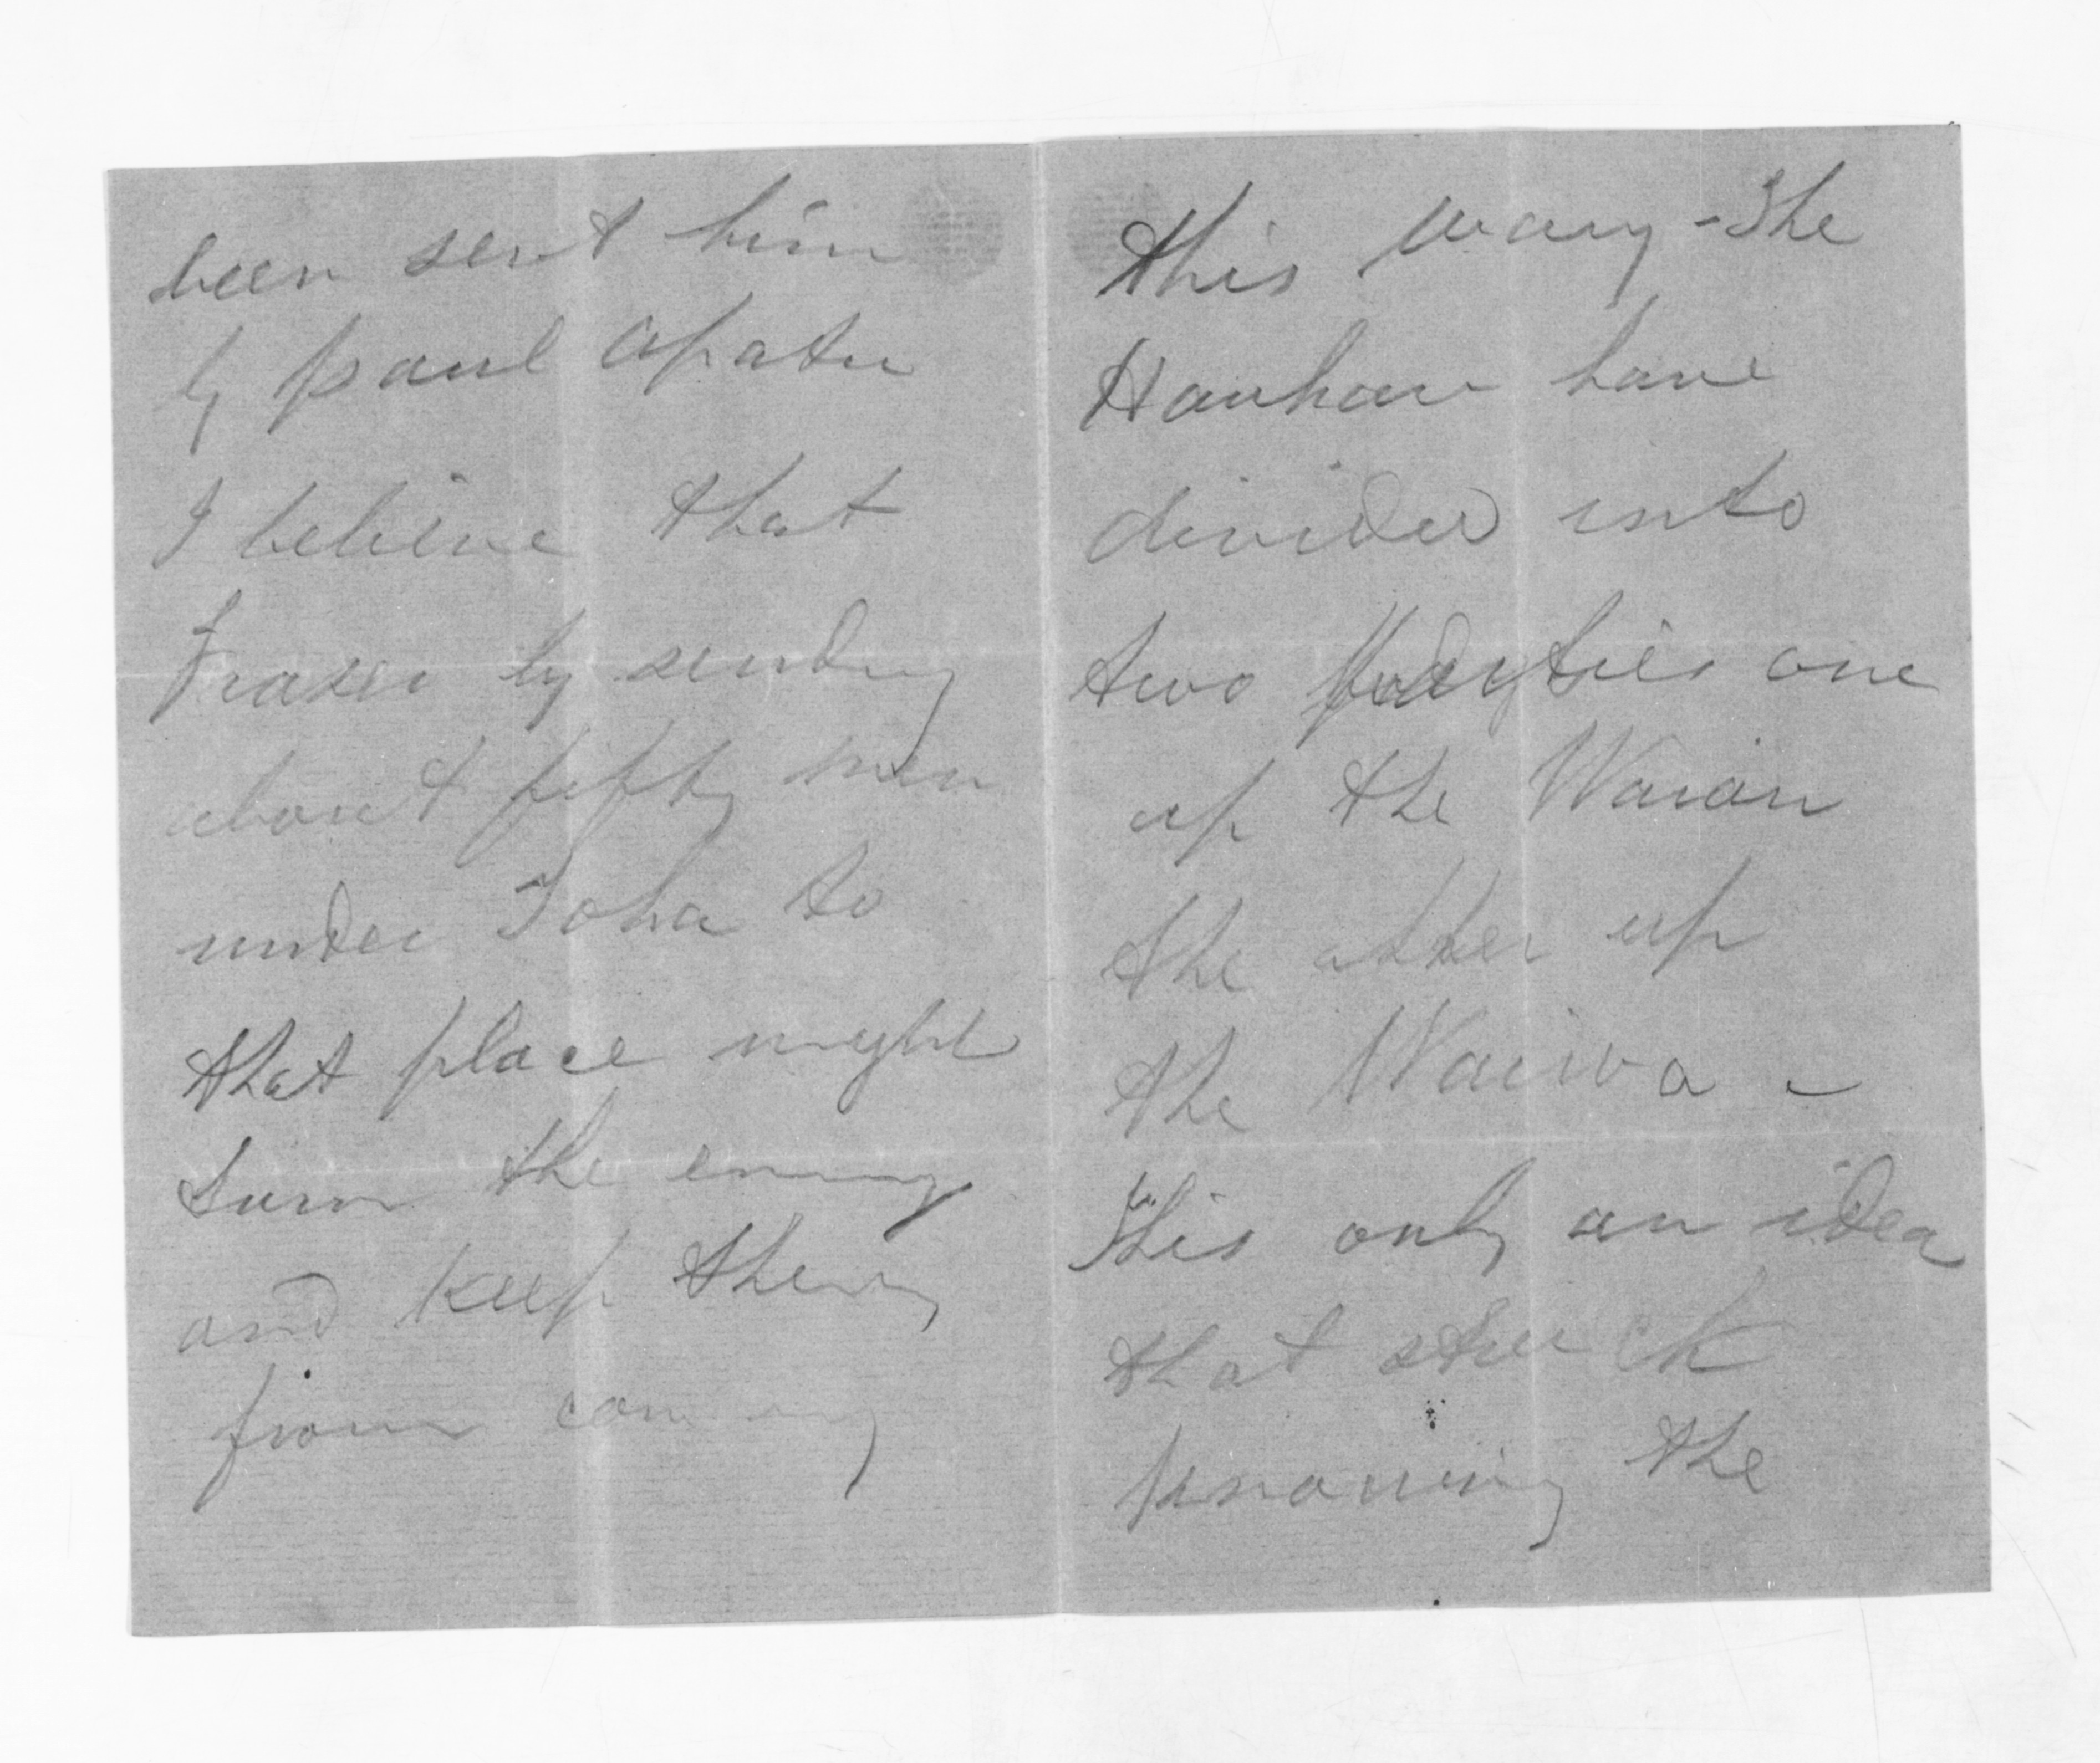 been sent him
by paul apatu
I believe that
Fraser by sending
about fifty men
under Toha to
that place might
turn the enemy
and keep them
from coming
this way - The
Hauhau have
divided into
two parties one
up the Waiau
the other up
the Wairoa -
this only an idea
that struck
knowing the